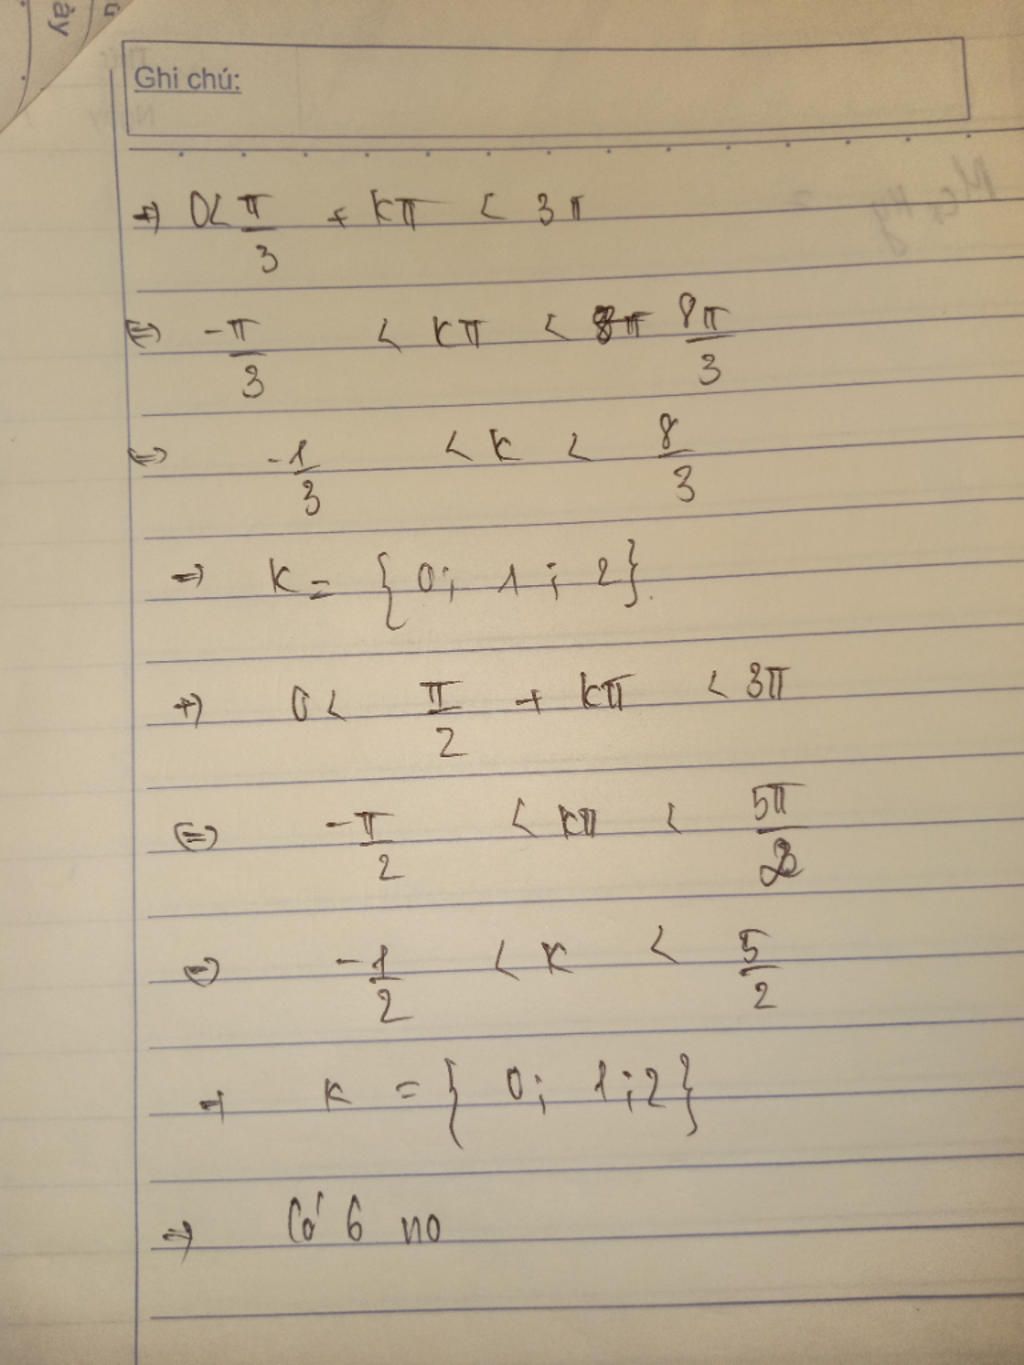 Ghi chú:
+) 0 < π/3 + kπ < 3π
⇔ -π/3 < kπ < 8π/3
⇔ -1/3 < k < 8/3
⇒ K = {0; 1; 2}.
+) 0 < π/2 + kπ < 3π
⇔ -π/2 < kπ < 5π/2
⇔ -1/2 < K < 5/2
⇒ K = {0; 1; 2}
⇒ Có 6 no